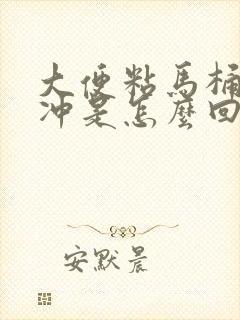 大便粘馬桶
沖是怎麽回
安默晨